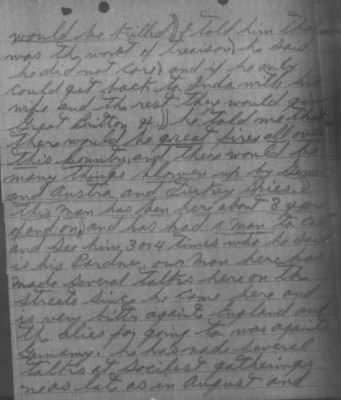 would be killed) I told him that
was the worst of treason) he said
he did not care) and if he only
could get back to Inda with his
wife and the rest they would give
Great Britton H.)) he told me that
there would be great fires all over
this country and there would be
many things blowen up by German
and Austra and Turkey spies.)
this man has ben here about 3 years
and on) and has had a man to call
and see him 3 or 4 times who he said
is his Pardner, our man here has
made several talks here on the
streets since he came here and
is very bitter againts England and
the alies for going to war againts
Germany. he has made several
talks at Socilest gatherings
as late as in August and